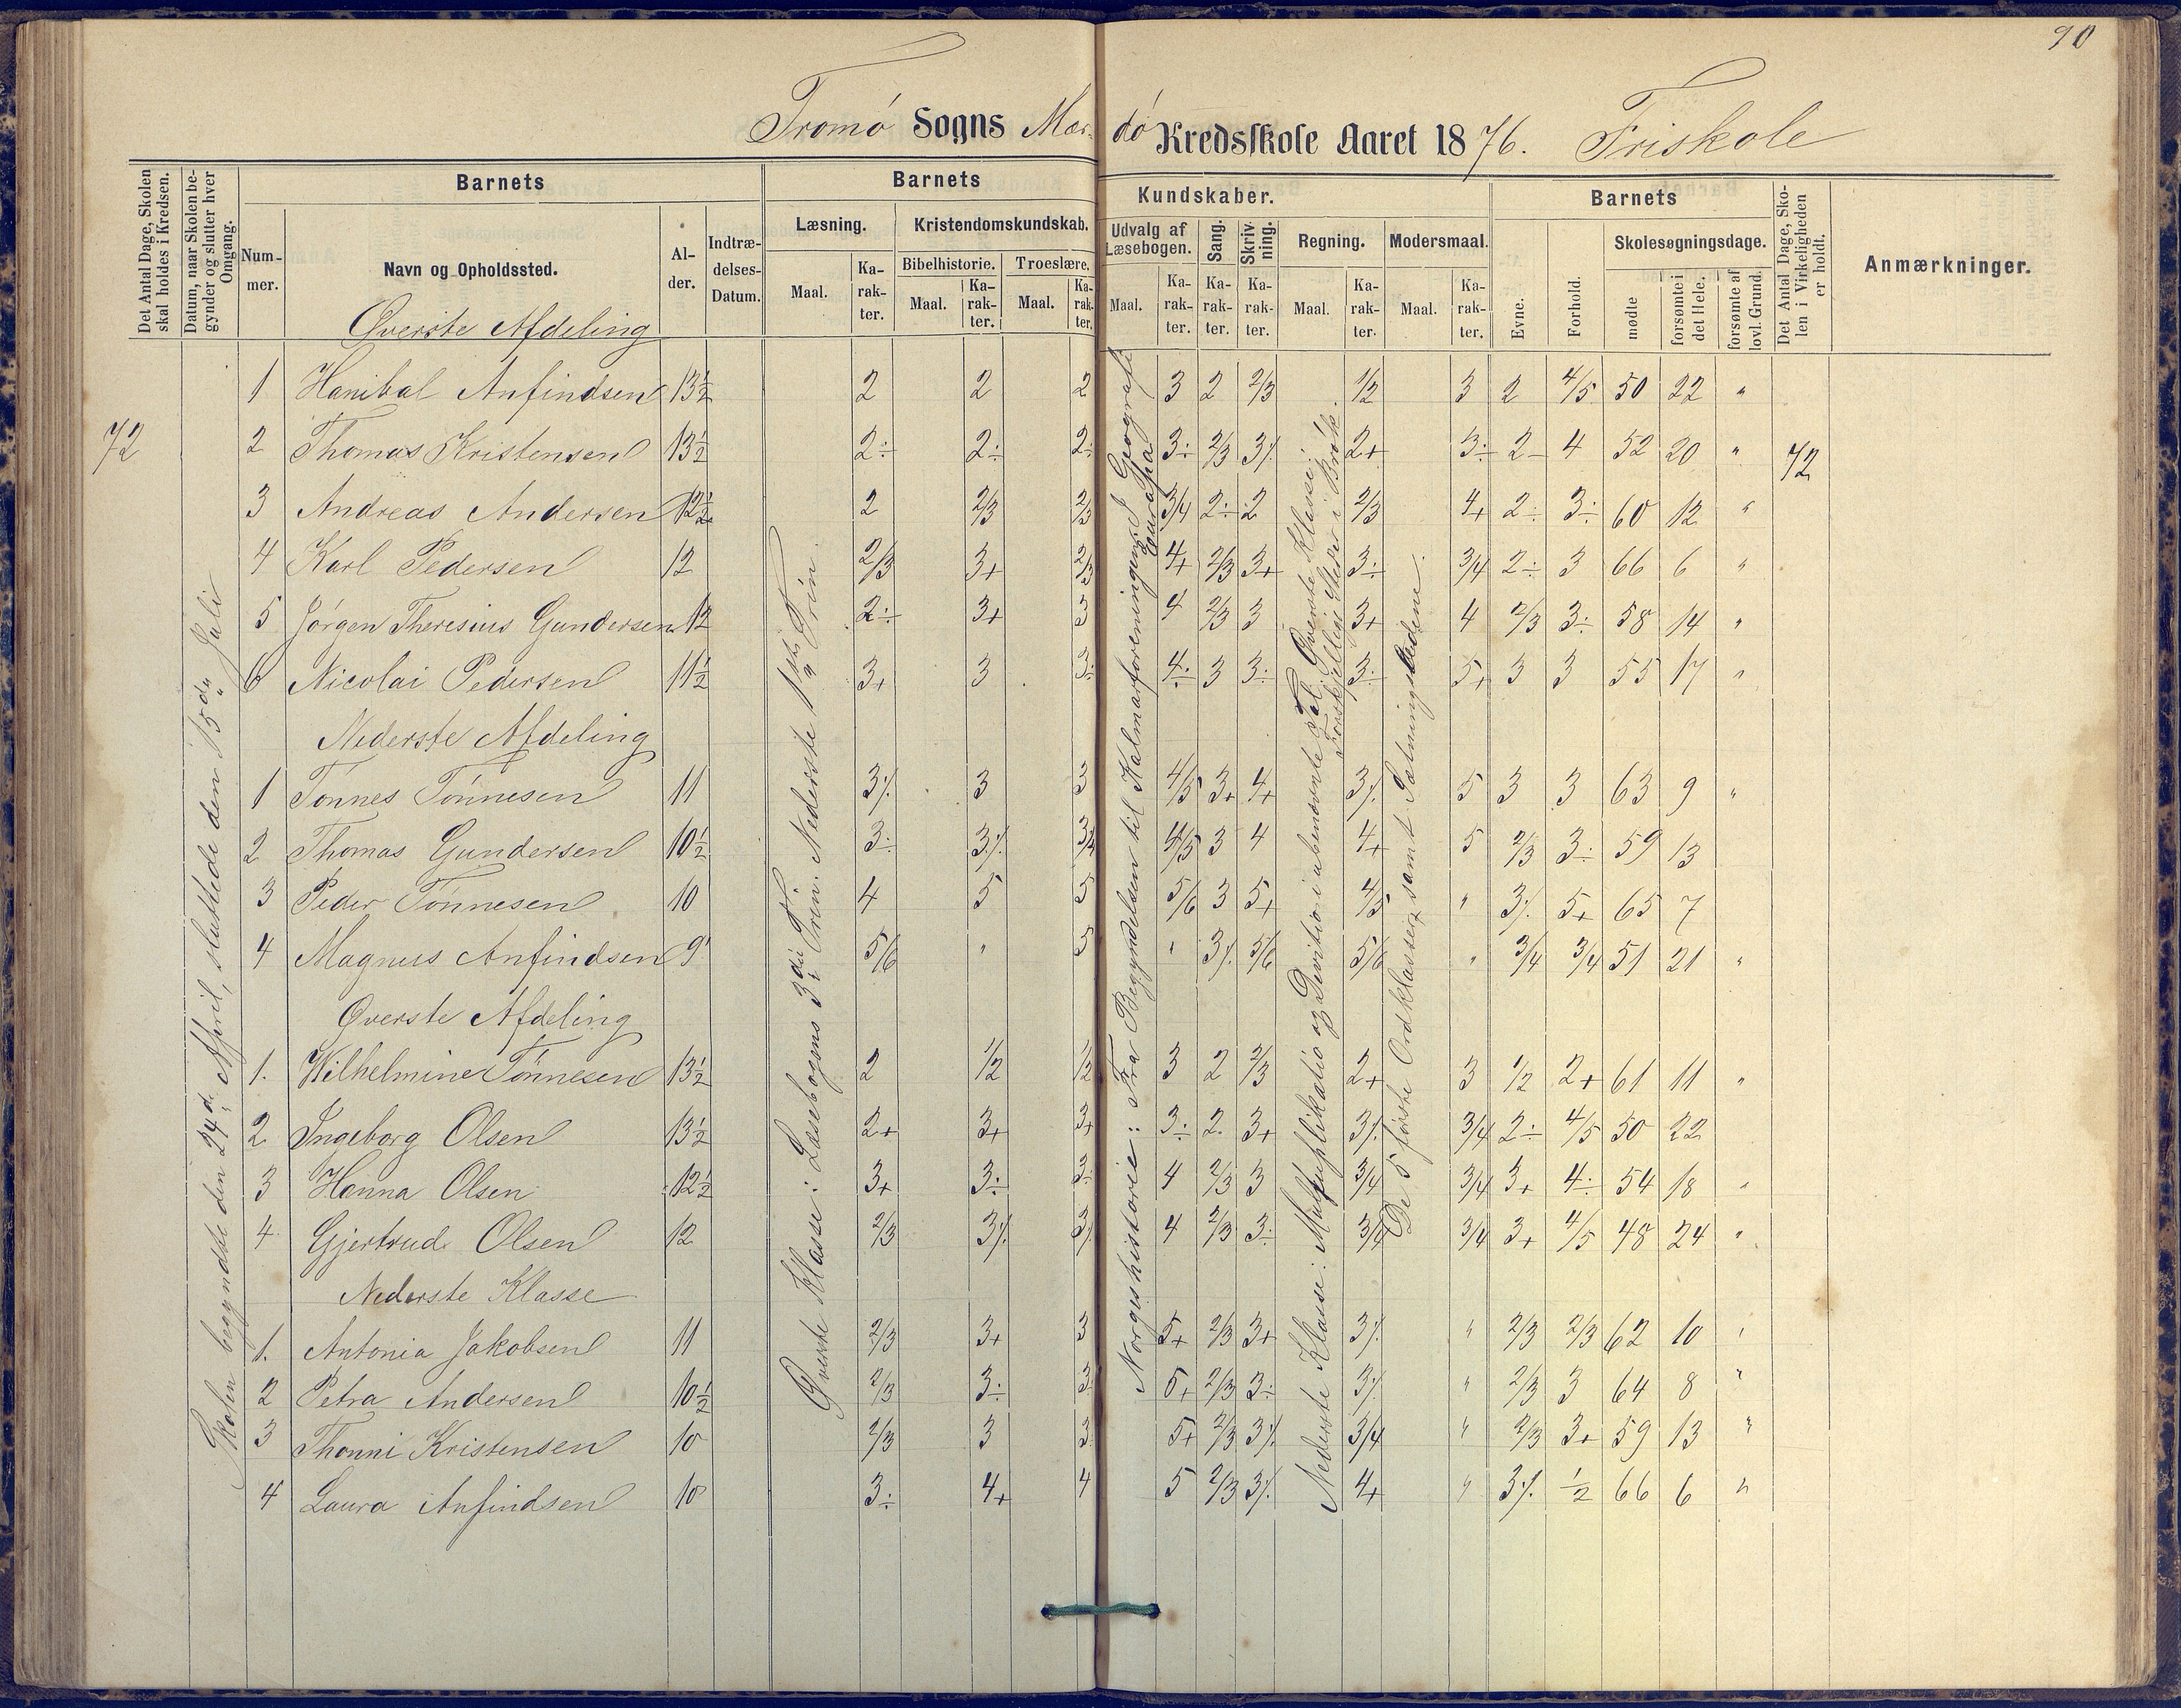 90
Tromø Sogns Mær- dø Kredsskole Aaret 1876. Friskole
Det Antal Dage, Skolen skal holdes i Kredsen.
Datum, naar Skolen begynder og slutter hver Omgang.
Barnets
Barnets
Kundskaber.
Barnets
Det Antal Dage, Skolen i Virkeligheden er holdt.
Anmærkninger.
Nummer.
Navn og Opholdssted.
Alder.
Indtrædelses-Datum.
Læsning.
Kristendomskundskab.
Udvalg af Læsebogen.
Sang.
Skrivning.
Regning.
Modersmaal.
Evne.
Forhold.
Skolesøgningsdage.
Bibelhistorie.
Troeslære.
Maal. Karakter. Maal. Karakter. Maal. Karakter. Maal. Karakter. Karakter. Karakter. Maal. Karakter. Maal. Karakter.
mødte
forsømte i det Hele.
forsømte af lovl. Grund.
Øverste Afdeling
1 Hanibal Anfindsen 13½ 2 2 2 3 2 2/3 1/2 3 2 4/5 50 22 "
72 2 Thomas Kristensen 13½ 2÷ 2÷ 2÷ 3÷ 2/3 3% 2+ 3÷ 2- 4 52 20 " 72
3 Andreas Andersen 12½ 2 2/3 2/3 3/4 2÷ 2 2/3 4+ 2÷ 3÷ 60 12 "
4 Karl Pedersen 12 2/3 3+ 2/3 4+ 2/3 3+ 3÷ 3/4 2÷ 3 66 6 "
5 Jörgen Theresius Gundersen 12 2÷ 3+ 3 4 2/3 3 3+ 4 2/3 3÷ 58 14 "
6 Nicolai Pedersen 11½ 3+ 3 3÷ 4÷ 3 3÷ 3÷ 5+ 3 3 55 17 "
Nederste Afdeling
1 Tönnes Tönnesen 11 3% 3 3 4/5 3+ 4+ 3% 5 3 3 63 9 "
2 Thomas Gundersen 10½ 3÷ 3% 3/4 4/5 3 4 4+ 5 2/3 3÷ 59 13
3 Peder Tönnesen 10 4 5 5 5/6 3 5+ 4/5 " 3% 5+ 65 7
4 Magnus Anfindsen 9 5/6 " 5 " 3% 5/6 5/6 " 3/4 3/4 51 21 "
Øverste Afdeling
1. Wilhelmine Tönnesen 13½ 2 1/2 1/2 3 2 2/3 2+ 3 1/2 2+ 61 11 "
2 Ingeborg Olsen 13½ 2+ 3+ 3+ 3÷ 2. 3+ 3% 3/4 2÷ 4/5 50 22
3 Hanna Olsen 12½ 3+ 3÷ 3÷ 4 2/3 3 3/4 3/4 3+ 4÷ 54 18 "
4 Gjertrud Olsen 12 2/3 3% 3% 4 2/3 3÷ 3/4 3/4 3+ 4/5 48 24 "
Nederste Klasse
1. Antonia Jakobsen 11 2/3 3+ 3 5+ 2/3 3+ 3% " 2/3 2/3 62 10 "
2 Petra Andersen 10½ 2/3 3÷ 3÷ 5+ 2/3 3÷ 3% " 2/3 3 64 8 "
3 Thonni Kristensen 10 2/3 3 3 5+ 2/3 3% 3/4 " 2/3 3+ 59 13 "
4 Laura Anfindsen 10 3÷ 4+ 4 5 2/3 3% 4+ " 3% 1/2 66 6 "
Skolen begyndte den 24d. April, sluttede den 15de Juli
Øverste Klasse: Læsebogens 3die Trin. Nederste 1ste Trin.
Norgeshistorie: Fra Begyndelsen til Kalmarforeningen. I Geografi Europa
Nederste Klasse: Multiplikatio og Divitio i ubenævnte Tal. Øverste Klasse: Forskjellige Steder i Brøk.
De 5 første Ordklasser samt Sætningsledene.